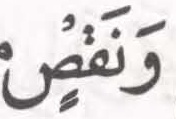 وَنَقْصٍ